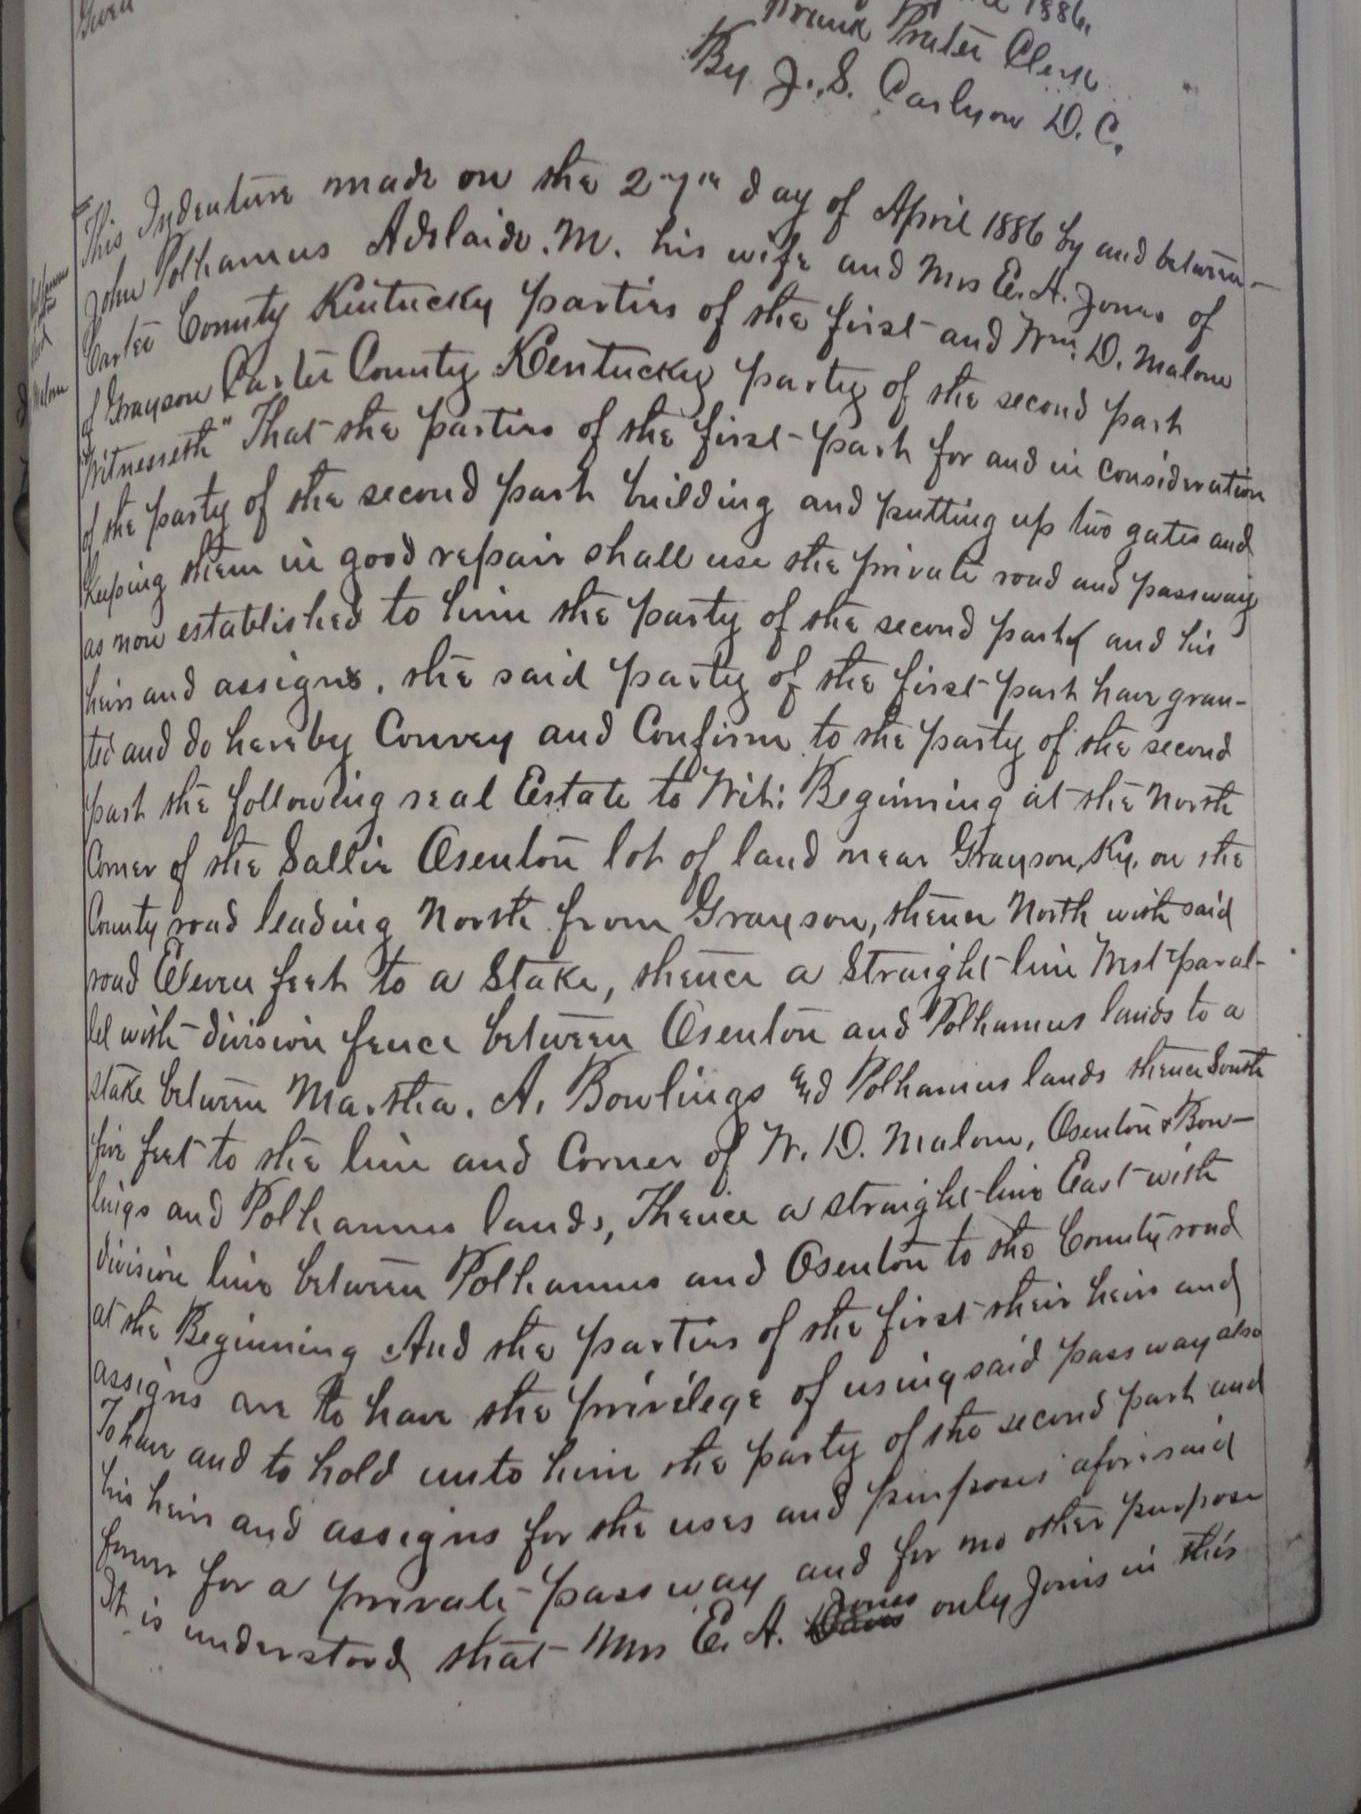 Given
1886.
Frank Prater Clerk
By J. S. Carlyon D.C.
This Indenture made on the 27th day of April 1886 by and between
John Polhamus Adelaide. M. his wife and Mrs E. A. Jones of
Carter County Kentucky parties of the first and Wm. D. Malone
of Grayson Carter County Kentucky party of the second part
"Witnesseth" That the parties of the first part for and in consideration
of the party of the second part building and putting up two gates and
keeping them in good repair shall use the private road and passway
as now established to him the party of the second part and his
heirs and assigns, the said party of the first part have gran-
ted and do hereby Convey and Confirm to the party of the second
part the following real Estate to Wit: Beginning at the North
Corner of the Sallie Osenton lot of land near Grayson, Ky, on the
County road leading North from Grayson, thence North with said
road Eleven feet to a Stake, thence a Straight line West paral-
lel with division fence between Osenton and Polhamus lands to a
stake between Martha. A. Bowlings and Polhamus lands thence South
five feet to the line and Corner of W. D. Malone, Osenton & Bow-
lings and Polhamus lands, Thence a straight line East with
division line between Polhamus and Osenton to the County road
at the Beginning And the parties of the first their heirs and
assigns are to have the privilege of using said pass way also
To have and to hold unto him the party of the second part and
his heirs and assigns for the uses and purposes aforesaid
forever for a private passway and for no other purpose
It is understood that Mrs E. A. Jones only Joins in this
Malone